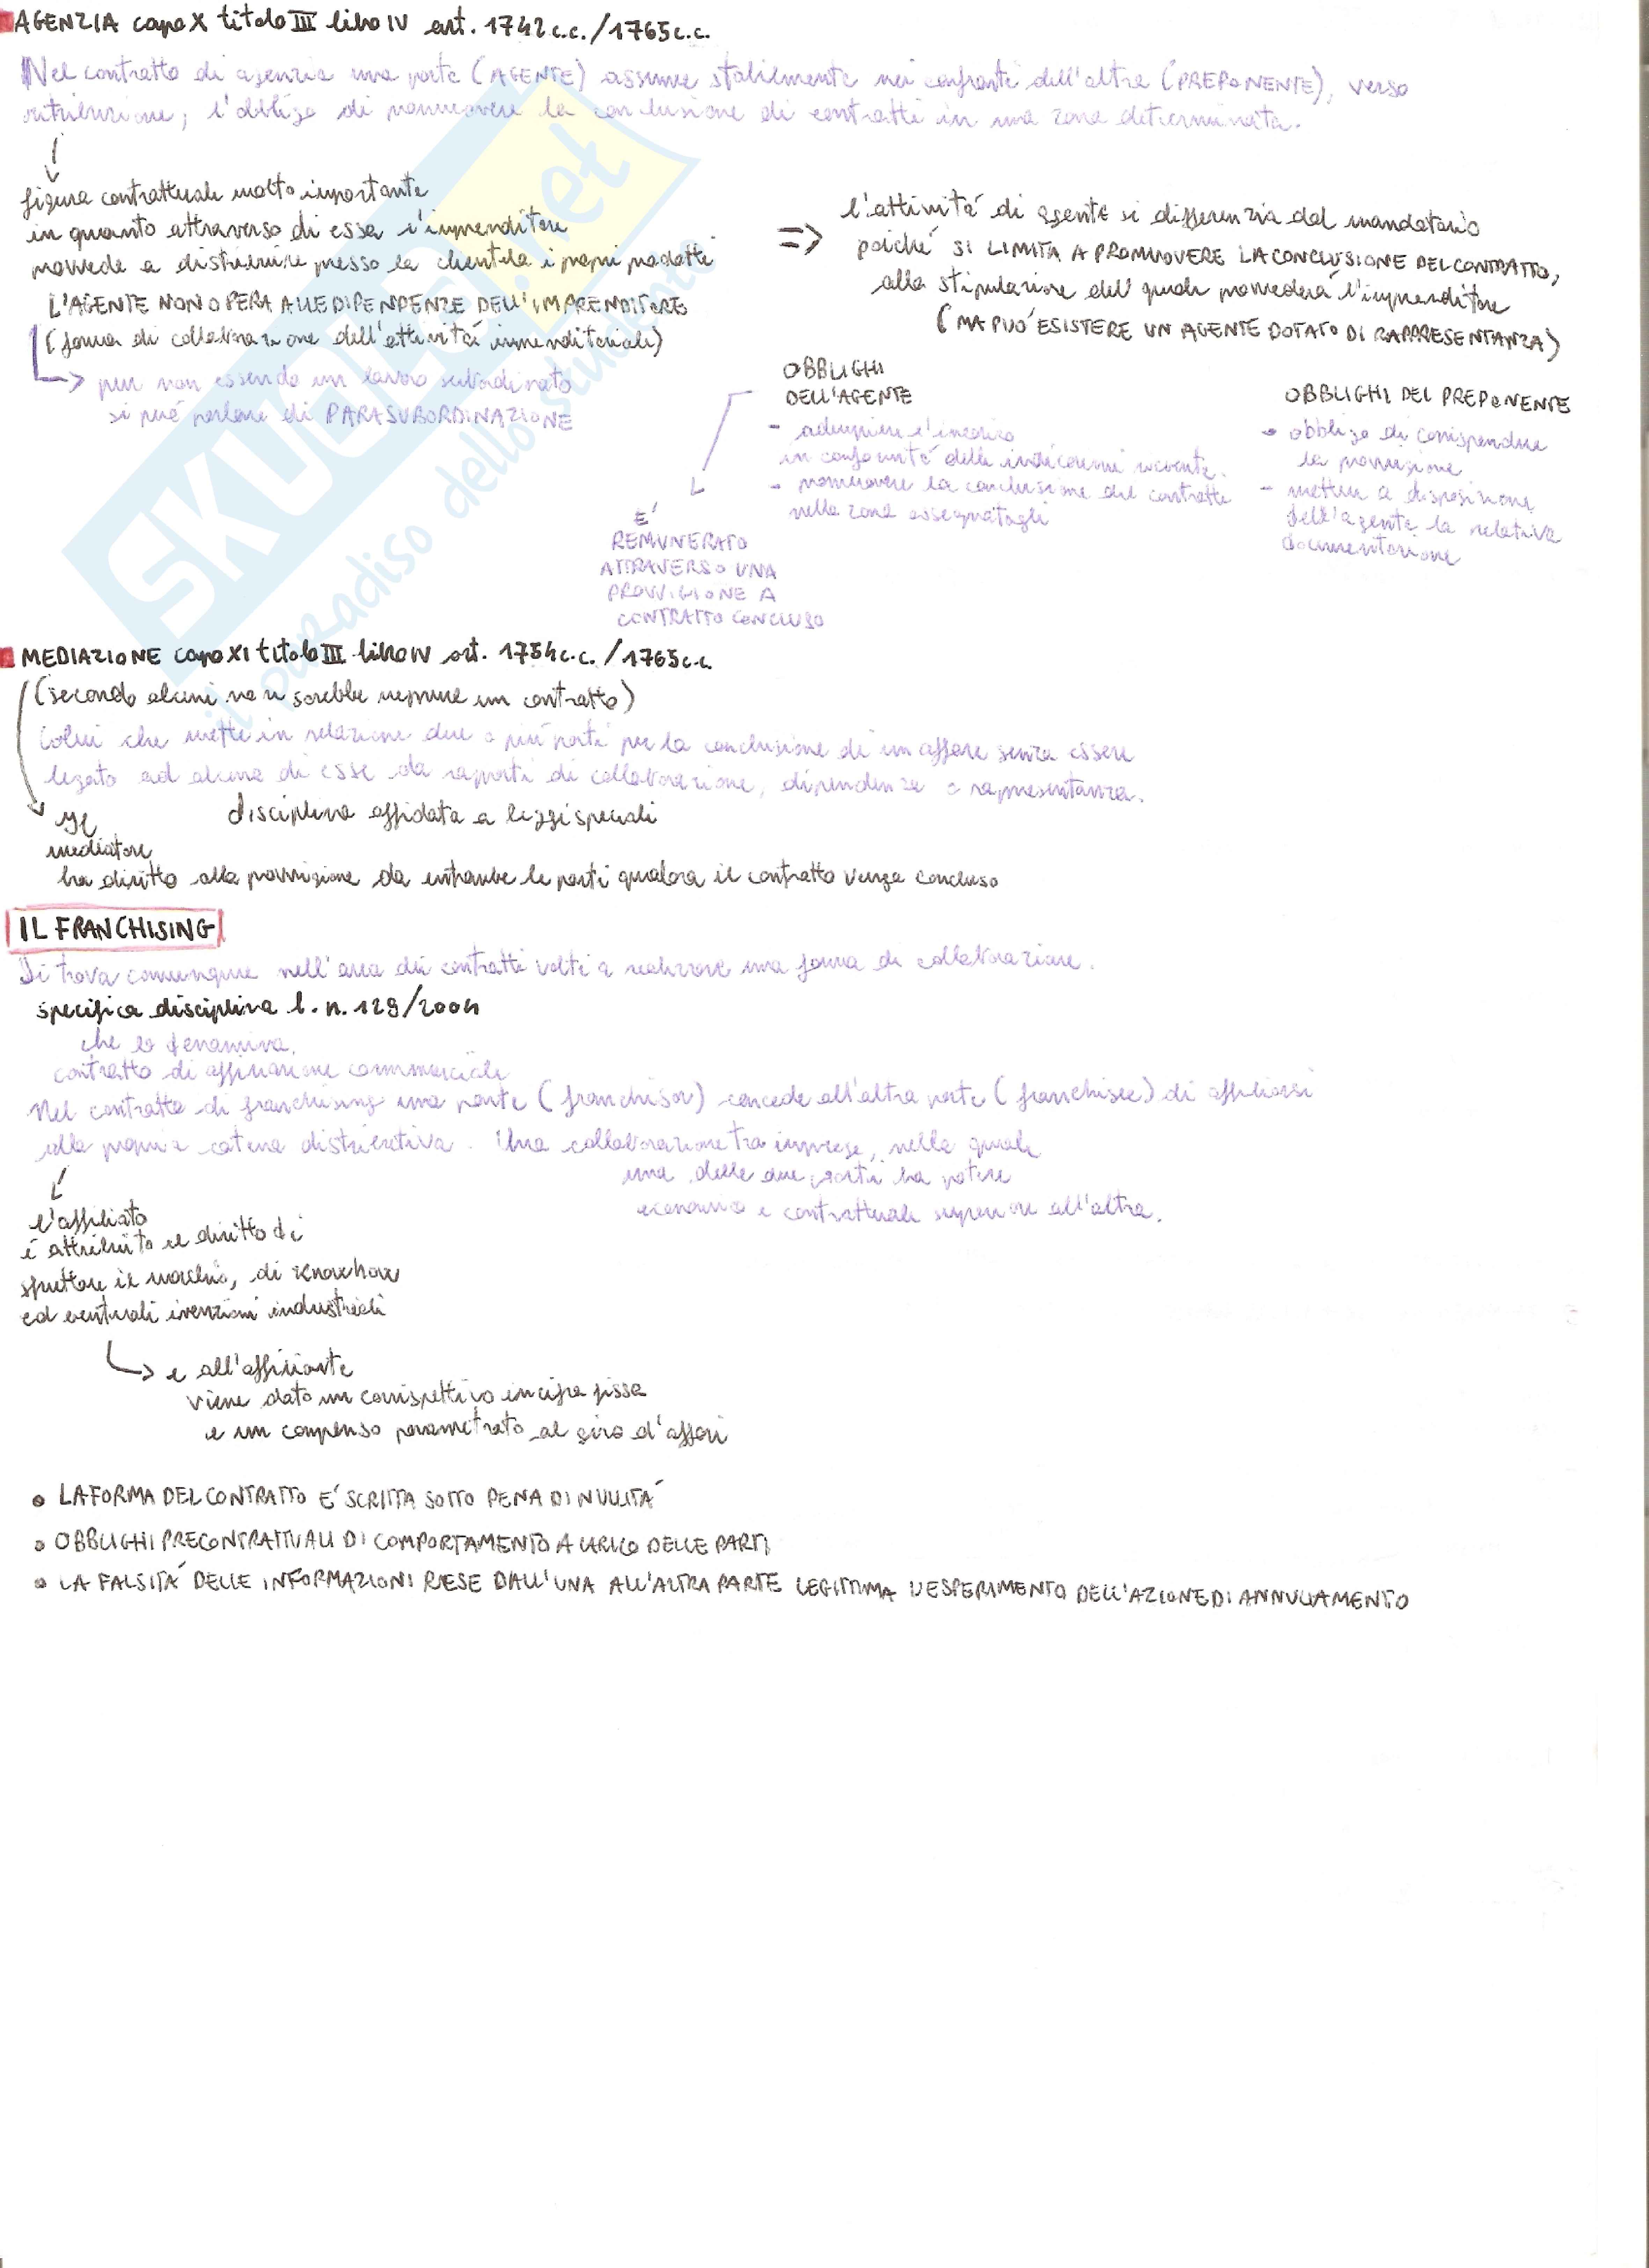 AGENZIA capo X titolo III libro IV art. 1742 c.c./1765 c.c.
Nel contratto di agenzia una parte (AGENTE) assume stabilmente nei confronti dell'altra (PREPONENTE), verso
retribuzione, l'obbligo di promuovere la conclusione di contratti in una zona determinata.
figura contrattuale molto importante
in quanto attraverso di essa l'imprenditore
provvede a distribuire presso la clientela i propri prodotti
L'AGENTE NON OPERA ALLE DIPENDENZE DELL'IMPRENDITORE
(forma di collaborazione dell'attività imprenditoriale)
pur non essendo un lavoro subordinato
si può parlare di PARASUBORDINAZIONE
=> l'attività di agente si differenzia dal mandatario
poiché SI LIMITA A PROMUOVERE LA CONCLUSIONE DEL CONTRATTO,
alla stipulazione del quale provvederà l'imprenditore
(MA PUO' ESISTERE UN AGENTE DOTATO DI RAPPRESENTANZA)
OBBLIGHI
DELL'AGENTE
- adempiere l'incarico
in conformità delle indicazioni ricevute.
- promuovere la conclusione del contratto
nella zona assegnatagli
E'
REMUNERATO
ATTRAVERSO UNA
PROVVIGIONE A
CONTRATTO CONCLUSO
OBBLIGHI DEL PREPONENTE
- obbligo di corrispondere
la provvigione
- mettere a disposizione
dell'agente la relativa
documentazione
MEDIAZIONE capo XI titolo III libro IV art. 1754 c.c./1765 c.c.
(secondo alcuni non sarebbe neppure un contratto)
Colui che mette in relazione due o più parti per la conclusione di un affare senza essere
legato ad alcuna di esse da rapporti di collaborazione, dipendenza o rappresentanza.
disciplina affidata a leggi speciali
Il
mediatore
ha diritto alla provvigione da entrambe le parti qualora il contratto venga concluso
IL FRANCHISING
Si trova comunque nell'area dei contratti volti a realizzare una forma di collaborazione.
specifica disciplina l. n. 129/2004
che lo denomina
contratto di affiliazione commerciale
Nel contratto di franchising una parte (franchisor) concede all'altra parte (franchisee) di affiliarsi
alla propria catena distributiva. Una collaborazione tra imprese, nella quale
una delle due parti ha potere
economico e contrattuale superiore all'altra.
l'affiliato
è attribuito il diritto di
sfruttare il marchio, di know how
ed eventuali invenzioni industriali
e all'affiliante
viene dato un corrispettivo in cifra fissa
e un compenso parametrato al giro d'affari
• LA FORMA DEL CONTRATTO E' SCRITTA SOTTO PENA DI NULLITA'
• OBBLIGHI PRECONTRATTUALI DI COMPORTAMENTO A CARICO DELLE PARTI
• LA FALSITA' DELLE INFORMAZIONI RESE DALL'UNA ALL'ALTRA PARTE LEGITTIMA L'ESPERIMENTO DELL'AZIONE DI ANNULLAMENTO
SKUOLA.net
il paradiso dello studente